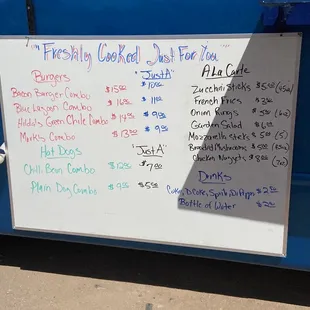 "Freshly Cooked Just For You"
Burgers "Just A"
Bacon Burger Combo $15.00 $10.00
Combo $16.00 $11.00
Green Chile Combo $14.00 $9.00
Combo $13.00 $9.00
Hot Dogs "Just A"
Chili Bean Combo $12.00 $7.00
Plain Dog Combo $9.00 $5.00
A La Carte
Zucchini Sticks $5.00
French Fries $3.00
Onion Rings $5.00
Garden Salad $6.00
Mozzarella Sticks $5.00 (5)
Breaded Mushrooms $5.00
Chicken Nuggets $8.00
Drinks
Coke, D.Coke, Sprite, Dr Pepper $2.00
Bottle of Water $2.00